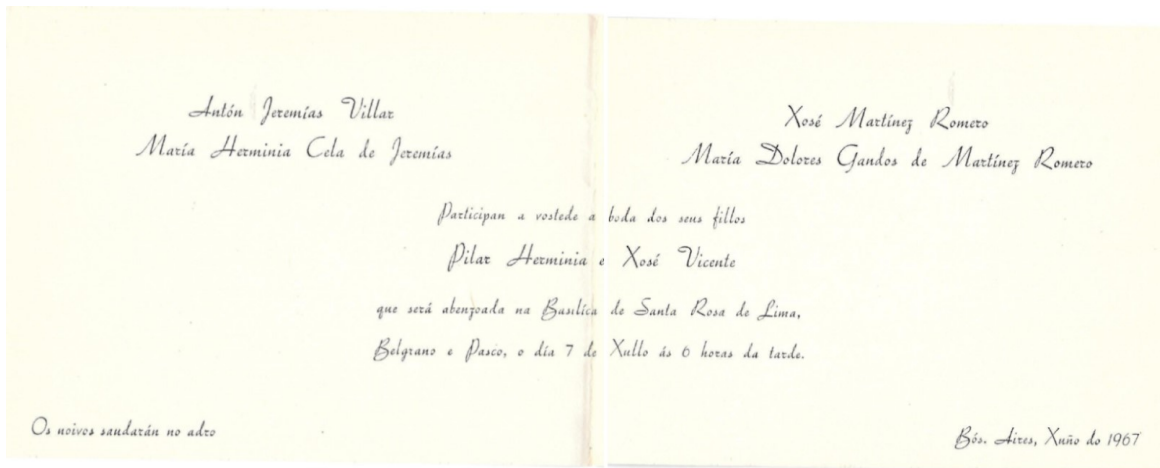 Antón Jeremías Villar
María Herminia Cela de Jeremías
Xosé Martínez Romero
María Dolores Gandos de Martínez Romero
Participan a vostede a boda dos seus fillos
Pilar Herminia e Xosé Vicente
que será abenzoada na Basílica de Santa Rosa de Lima,
Belgrano e Pasco, o día 7 de Xullo ás 6 horas da tarde.
Os noivos saudarán no adro
Bós. Aires, Xuño do 1967